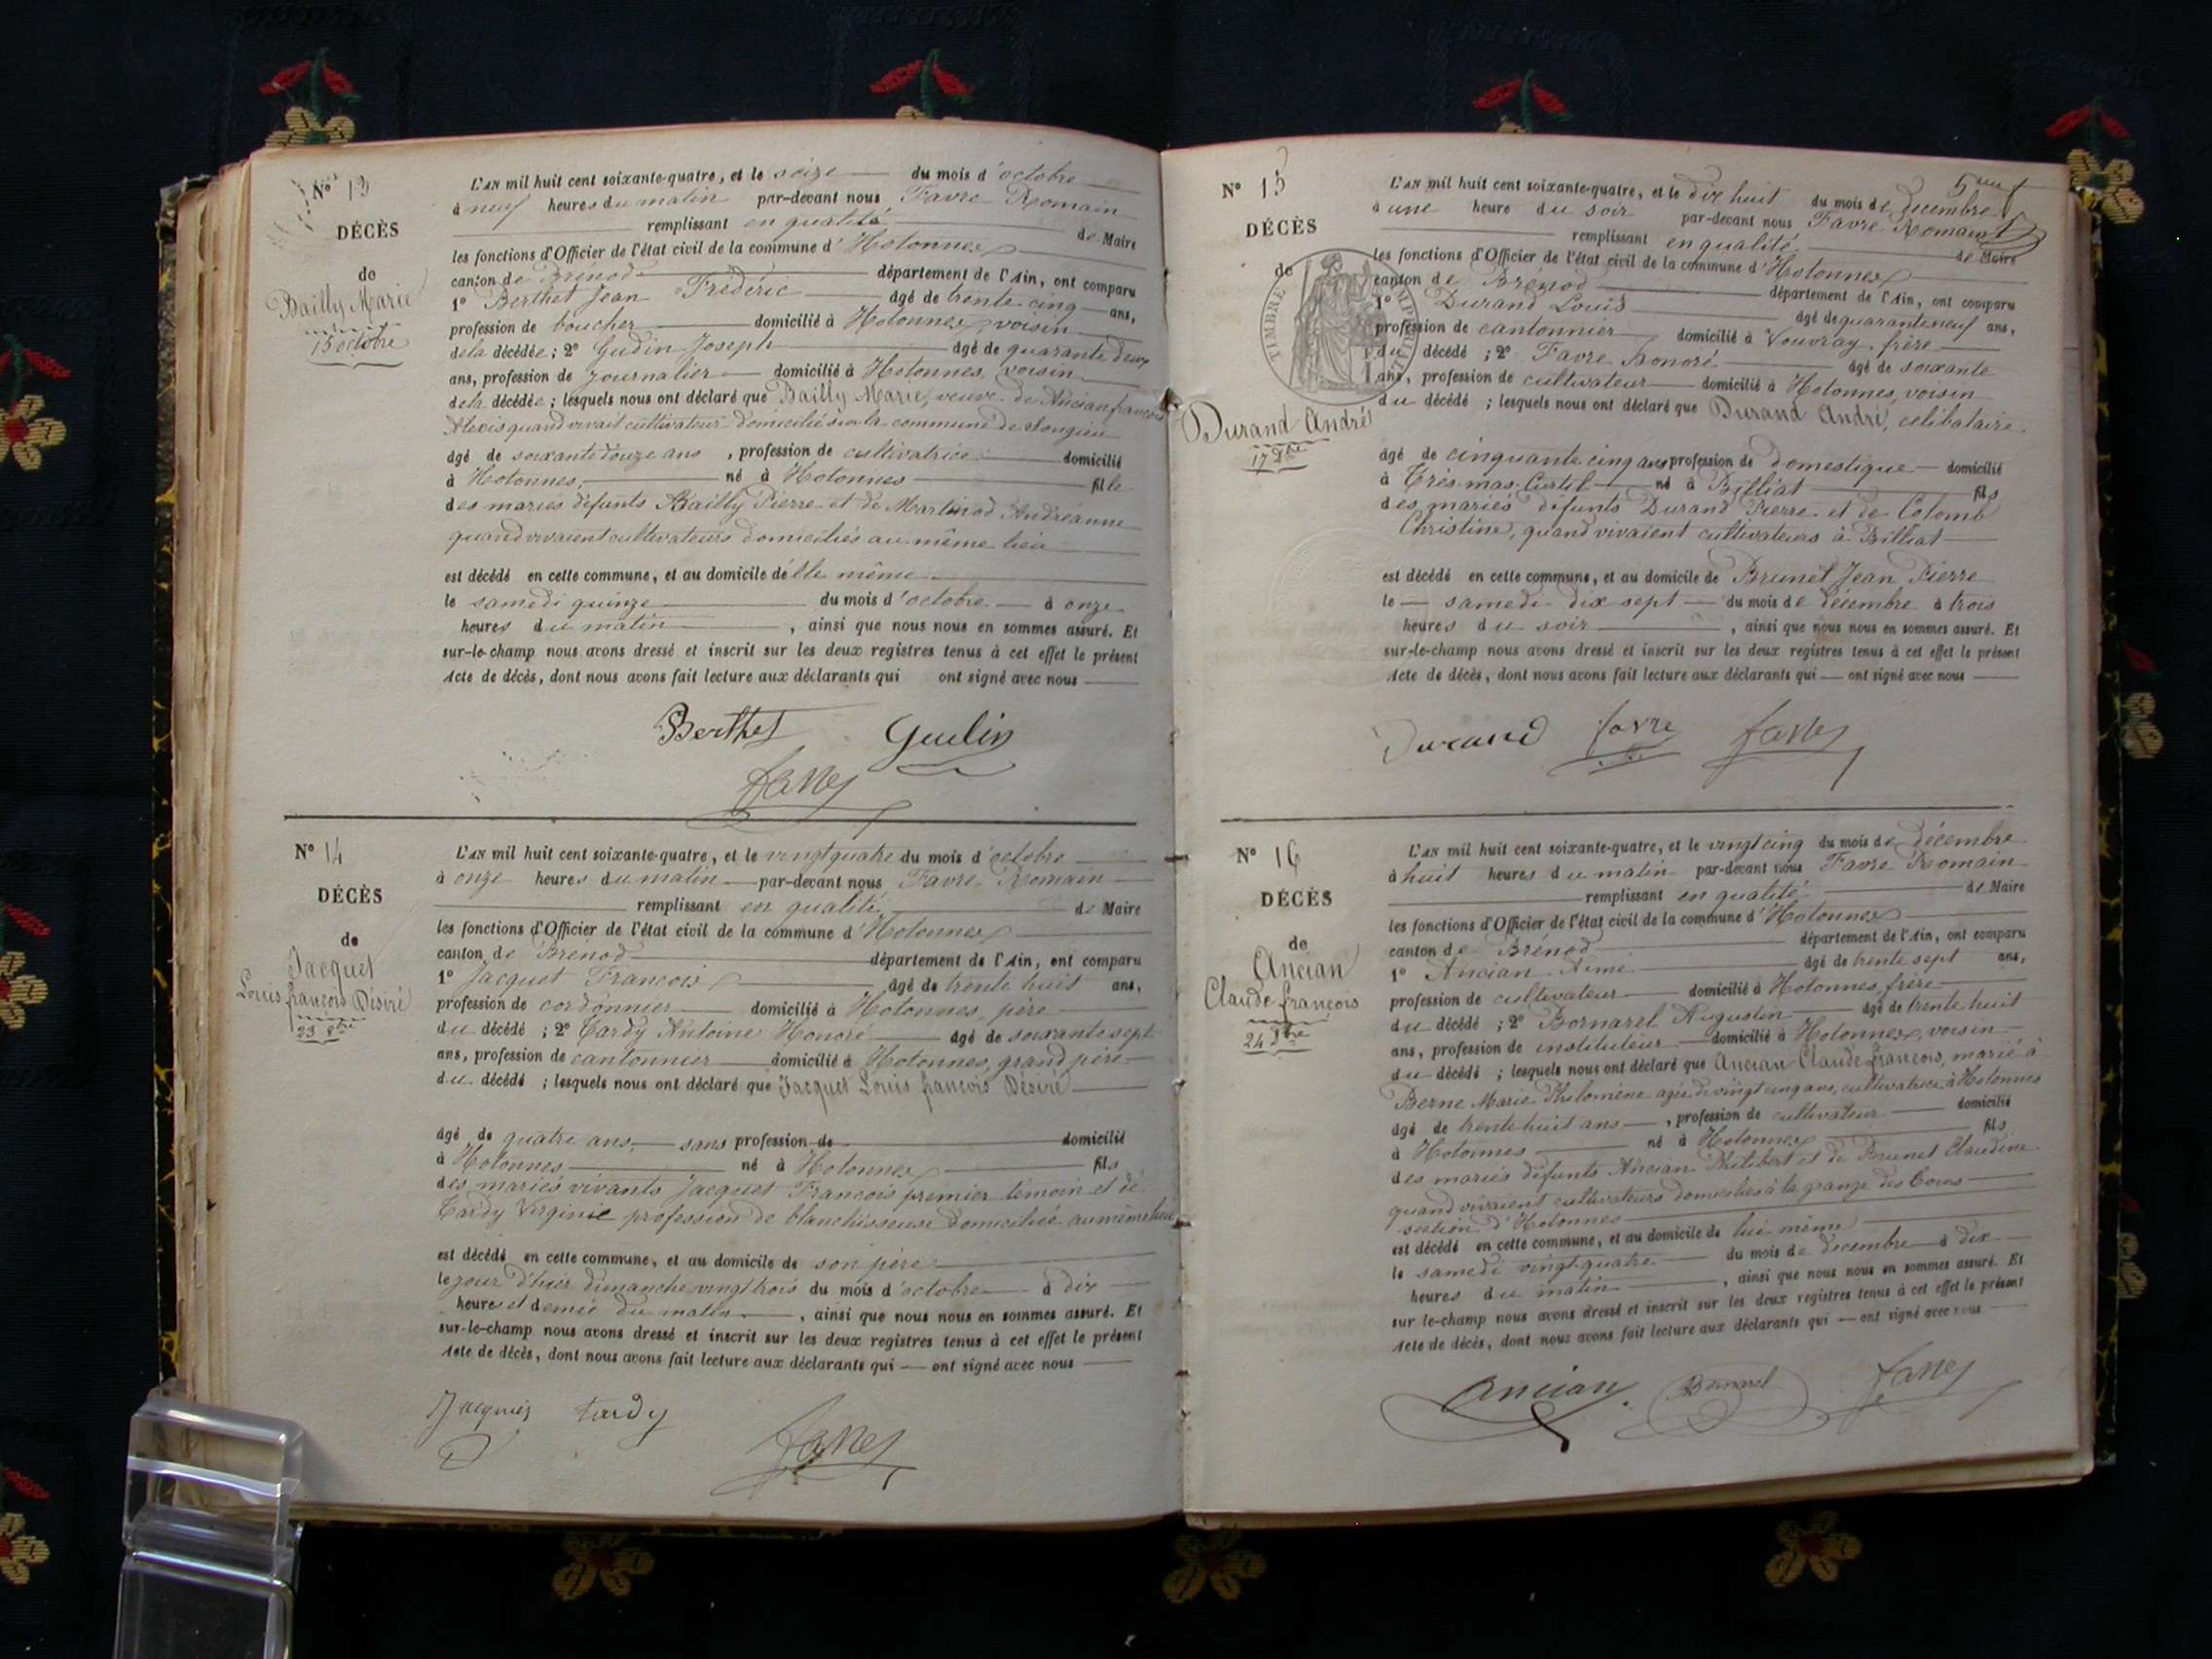 N° 13
DÉCÈS
de
Bailly Marie
15 octobre
L'AN mil huit cent soixante-quatre, et le seize du mois d'octobre
à neuf heures du matin par-devant nous Favre Romain
remplissant en qualité de Maire
les fonctions d'Officier de l'état civil de la commune d'Hotonnes
canton de Brénod département de l'Ain, ont comparu
1° Berthet Jean Frédéric âgé de trente cinq ans,
profession de boucher domicilié à Hotonnes, voisin
de la décédée ; 2° Gudin Joseph âgé de quarante deux
ans, profession de journalier domicilié à Hotonnes, voisin
de la décédée ; lesquels nous ont déclaré que Bailly Marie, veuve de Ancian françois
Alexis quand vivait cultivateur domicilié sur la commune de Songieu
âgé de soixante douze ans, profession de cultivatrice domicilié
à Hotonnes, né à Hotonnes fille
des mariés défunts Bailly Pierre et de Martinod Andréanne
quand vivaient cultivateurs domiciliés au même lieu
est décédé en cette commune, et au domicile d'elle même
le samedi quinze du mois d'octobre à onze
heures du matin, ainsi que nous nous en sommes assuré. Et
sur-le-champ nous avons dressé et inscrit sur les deux registres tenus à cet effet le présent
Acte de décès, dont nous avons fait lecture aux déclarants qui ont signé avec nous
Berthet Gudin
Favre
N° 14
DÉCÈS
de
Jacquet
Louis françois Désiré
23 8bre
L'AN mil huit cent soixante-quatre, et le vingt quatre du mois d'octobre
à onze heures du matin par-devant nous Favre Romain
remplissant en qualité de Maire
les fonctions d'Officier de l'état civil de la commune d'Hotonnes
canton de Brénod département de l'Ain, ont comparu
1° Jacquet François âgé de trente huit ans,
profession de cordonnier domicilié à Hotonnes, père
du décédé ; 2° Tardy Antoine Honoré âgé de soixante sept
ans, profession de cantonnier domicilié à Hotonnes, grand père
du décédé ; lesquels nous ont déclaré que Jacquet Louis françois Désiré
âgé de quatre ans, sans profession de domicilié
à Hotonnes né à Hotonnes fils
des mariés vivants Jacquet François premier témoin et de
Tardy Virginie profession de blanchisseuse domiciliée au même lieu
est décédé en cette commune, et au domicile de son père
le jour d'hier dimanche vingt trois du mois d'octobre à dix
heures et demie du matin, ainsi que nous nous en sommes assuré. Et
sur-le-champ nous avons dressé et inscrit sur les deux registres tenus à cet effet le présent
Acte de décès, dont nous avons fait lecture aux déclarants qui ont signé avec nous
Jacquet tardy
Favre
N° 15
DÉCÈS
de
TIMBRE IMPERIAL
Durand André
17 Xbre
L'AN mil huit cent soixante-quatre, et le dix huit du mois de decembre
à une heure du soir par-devant nous Favre Romain
remplissant en qualité de Maire
les fonctions d'Officier de l'état civil de la commune d'Hotonnes
canton de Brénod département de l'Ain, ont comparu
1° Durand Louis âgé de quarante neuf ans,
profession de cantonnier domicilié à Vouvray, frère
du décédé ; 2° Favre honoré âgé de soixante
ans, profession de cultivateur domicilié à Hotonnes, voisin
du décédé ; lesquels nous ont déclaré que Durand André, célibataire
âgé de cinquante cinq ans profession de domestique domicilié
à né à Billiat fils
des mariés défunts Durand Pierre et de Colomb
Christine, quand vivaient cultivateurs à Billiat
est décédé en cette commune, et au domicile de Brunet Jean Pierre
le samedi dix sept du mois de décembre à trois
heures du soir, ainsi que nous nous en sommes assuré. Et
sur-le-champ nous avons dressé et inscrit sur les deux registres tenus à cet effet le présent
Acte de décès, dont nous avons fait lecture aux déclarants qui ont signé avec nous
Durand favre Favre
N° 16
DÉCÈS
de
Ancian
Claude françois
24 Xbre
L'AN mil huit cent soixante-quatre, et le vingt cinq du mois de décembre
à huit heures du matin par-devant nous Favre Romain
remplissant en qualité de Maire
les fonctions d'Officier de l'état civil de la commune d'Hotonnes
canton de Brénod département de l'Ain, ont comparu
1° Ancian Aimé âgé de trente sept ans,
profession de cultivateur domicilié à Hotonnes, frère
du décédé ; 2° Bornarel Augustin âgé de trente huit
ans, profession de instituteur domicilié à Hotonnes, voisin
du décédé ; lesquels nous ont déclaré que Ancian Claude françois, marié à
Berne Marie Philomène agée de vingt cinq ans, cultivatrice, à Hotonnes
âgé de trente huit ans, profession de cultivateur domicilié
à Hotonnes né à Hotonnes fils
des mariés défunts Ancian Philibert et de Brunet Claudine
quand vivaient cultivateurs domiciliés à la grange des
section d'Hotonnes
est décédé en cette commune, et au domicile de lui même
le samedi vingt quatre du mois de decembre à dix
heures du matin, ainsi que nous nous en sommes assuré. Et
sur le-champ nous avons dressé et inscrit sur les deux registres tenus à cet effet le présent
Acte de décès, dont nous avons fait lecture aux déclarants qui ont signé avec nous
Ancian Bornarel Favre